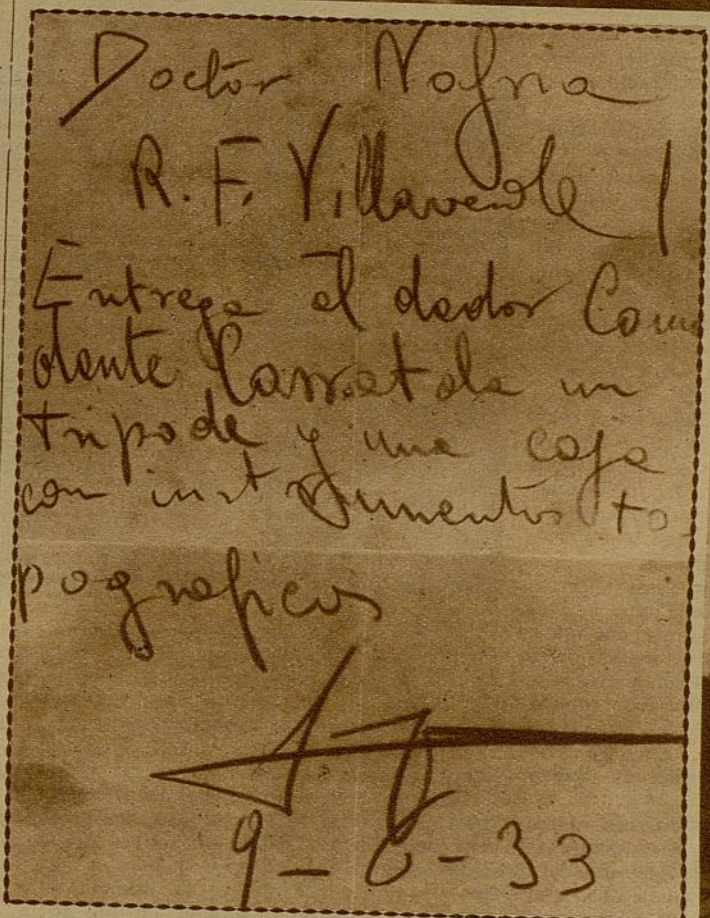 Doctor Nofria
R.F. Villaverde
Entrega al dador Coman
dante Carratala un
tripode y una caja
con instrumentos to
pograficos
9-6-33